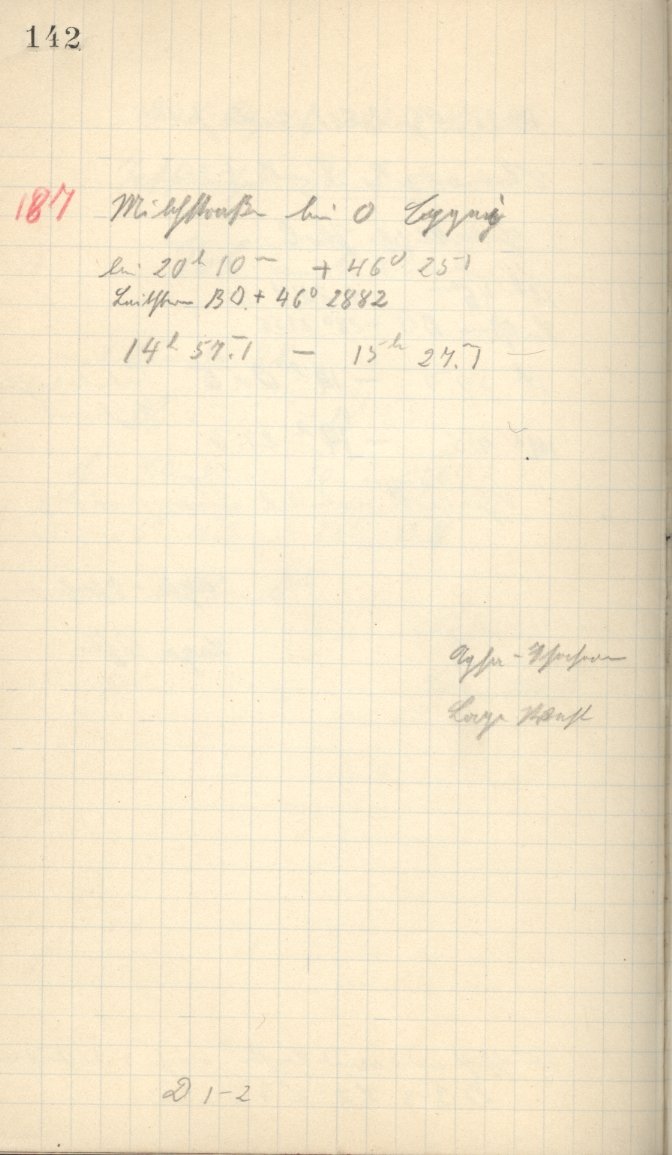 142
187 Milchstraße bei o Cygni
bei 20h 10m + 46° 25'
Leitstern BD. + 46° 2882
14h 57.m1 — 15h 27.m1
Agfa -
Lage West
D 1-2